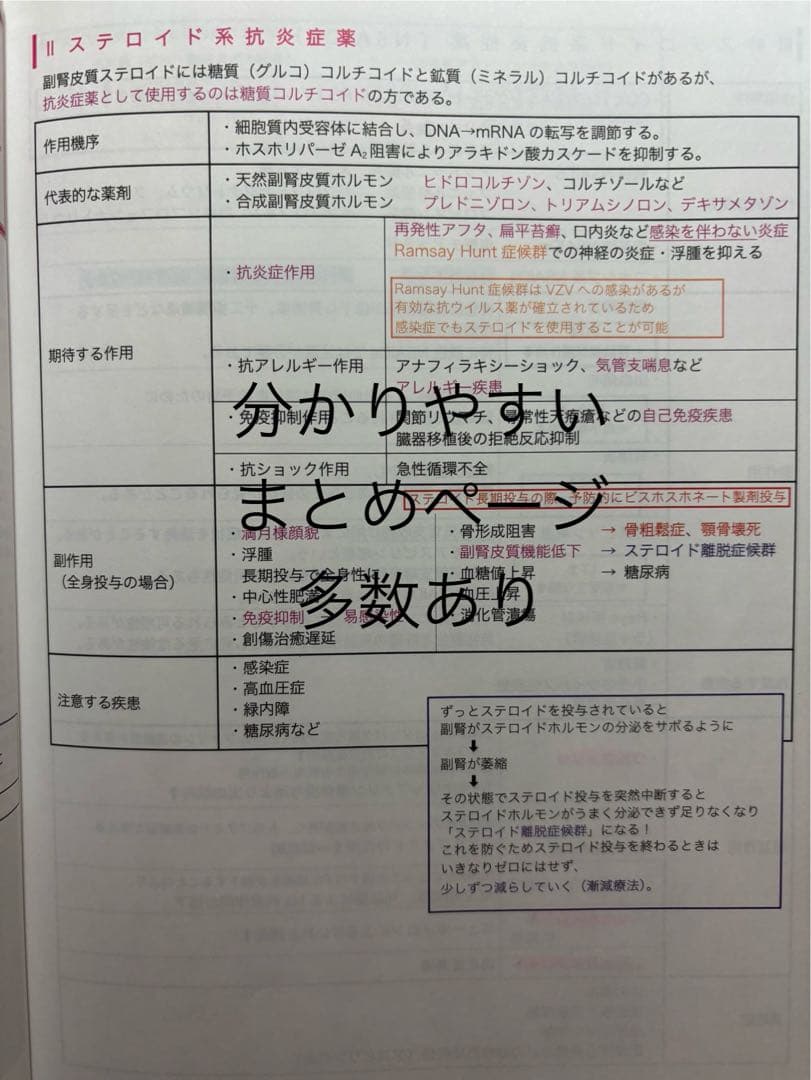 II ステロイド系抗炎症薬
副腎皮質ステロイドには糖質（グルコ）コルチコイドと鉱質（ミネラル）コルチコイドがあるが、
抗炎症薬として使用するのは糖質コルチコイドの方である。
作用機序
・細胞質内受容体に結合し、DNA→mRNAの転写を調節する。
・ホスホリパーゼA₂阻害によりアラキドン酸カスケードを抑制する。
代表的な薬剤
・天然副腎皮質ホルモン　ヒドロコルチゾン、コルチゾールなど
・合成副腎皮質ホルモン　プレドニゾロン、トリアムシノロン、デキサメタゾン
期待する作用
・抗炎症作用
再発性アフタ、扁平苔癬、口内炎など感染を伴わない炎症
Ramsay Hunt 症候群での神経の炎症・浮腫を抑える
Ramsay Hunt 症候群は VZV への感染があるが
有効な抗ウイルス薬が確立されているため
感染症でもステロイドを使用することが可能
・抗アレルギー作用
アナフィラキシーショック、気管支喘息など
アレルギー疾患
・免疫抑制作用
関節リウマチ、尋常性天疱瘡などの自己免疫疾患
臓器移植後の拒絶反応抑制
・抗ショック作用
急性循環不全
分かりやすい
まとめページ
多数あり
副作用
（全身投与の場合）
ステロイド長期投与の際、予防的にビスホスホネート製剤投与
・満月様顔貌
・浮腫
長期投与で全身性に
・中心性肥満
・免疫抑制 → 易感染性
・創傷治癒遅延
・骨形成阻害　→ 骨粗鬆症、顎骨壊死
・副腎皮質機能低下　→ ステロイド離脱症候群
・血糖値上昇　→ 糖尿病
・血圧上昇
・消化管潰瘍
注意する疾患
・感染症
・高血圧症
・緑内障
・糖尿病など
ずっとステロイドを投与されていると
副腎がステロイドホルモンの分泌をサボるように
↓
副腎が萎縮
↓
その状態でステロイド投与を突然中断すると
ステロイドホルモンがうまく分泌できず足りなくなり
「ステロイド離脱症候群」になる！
これを防ぐためステロイド投与を終わるときは
いきなりゼロにはせず、
少しずつ減らしていく（漸減療法）。